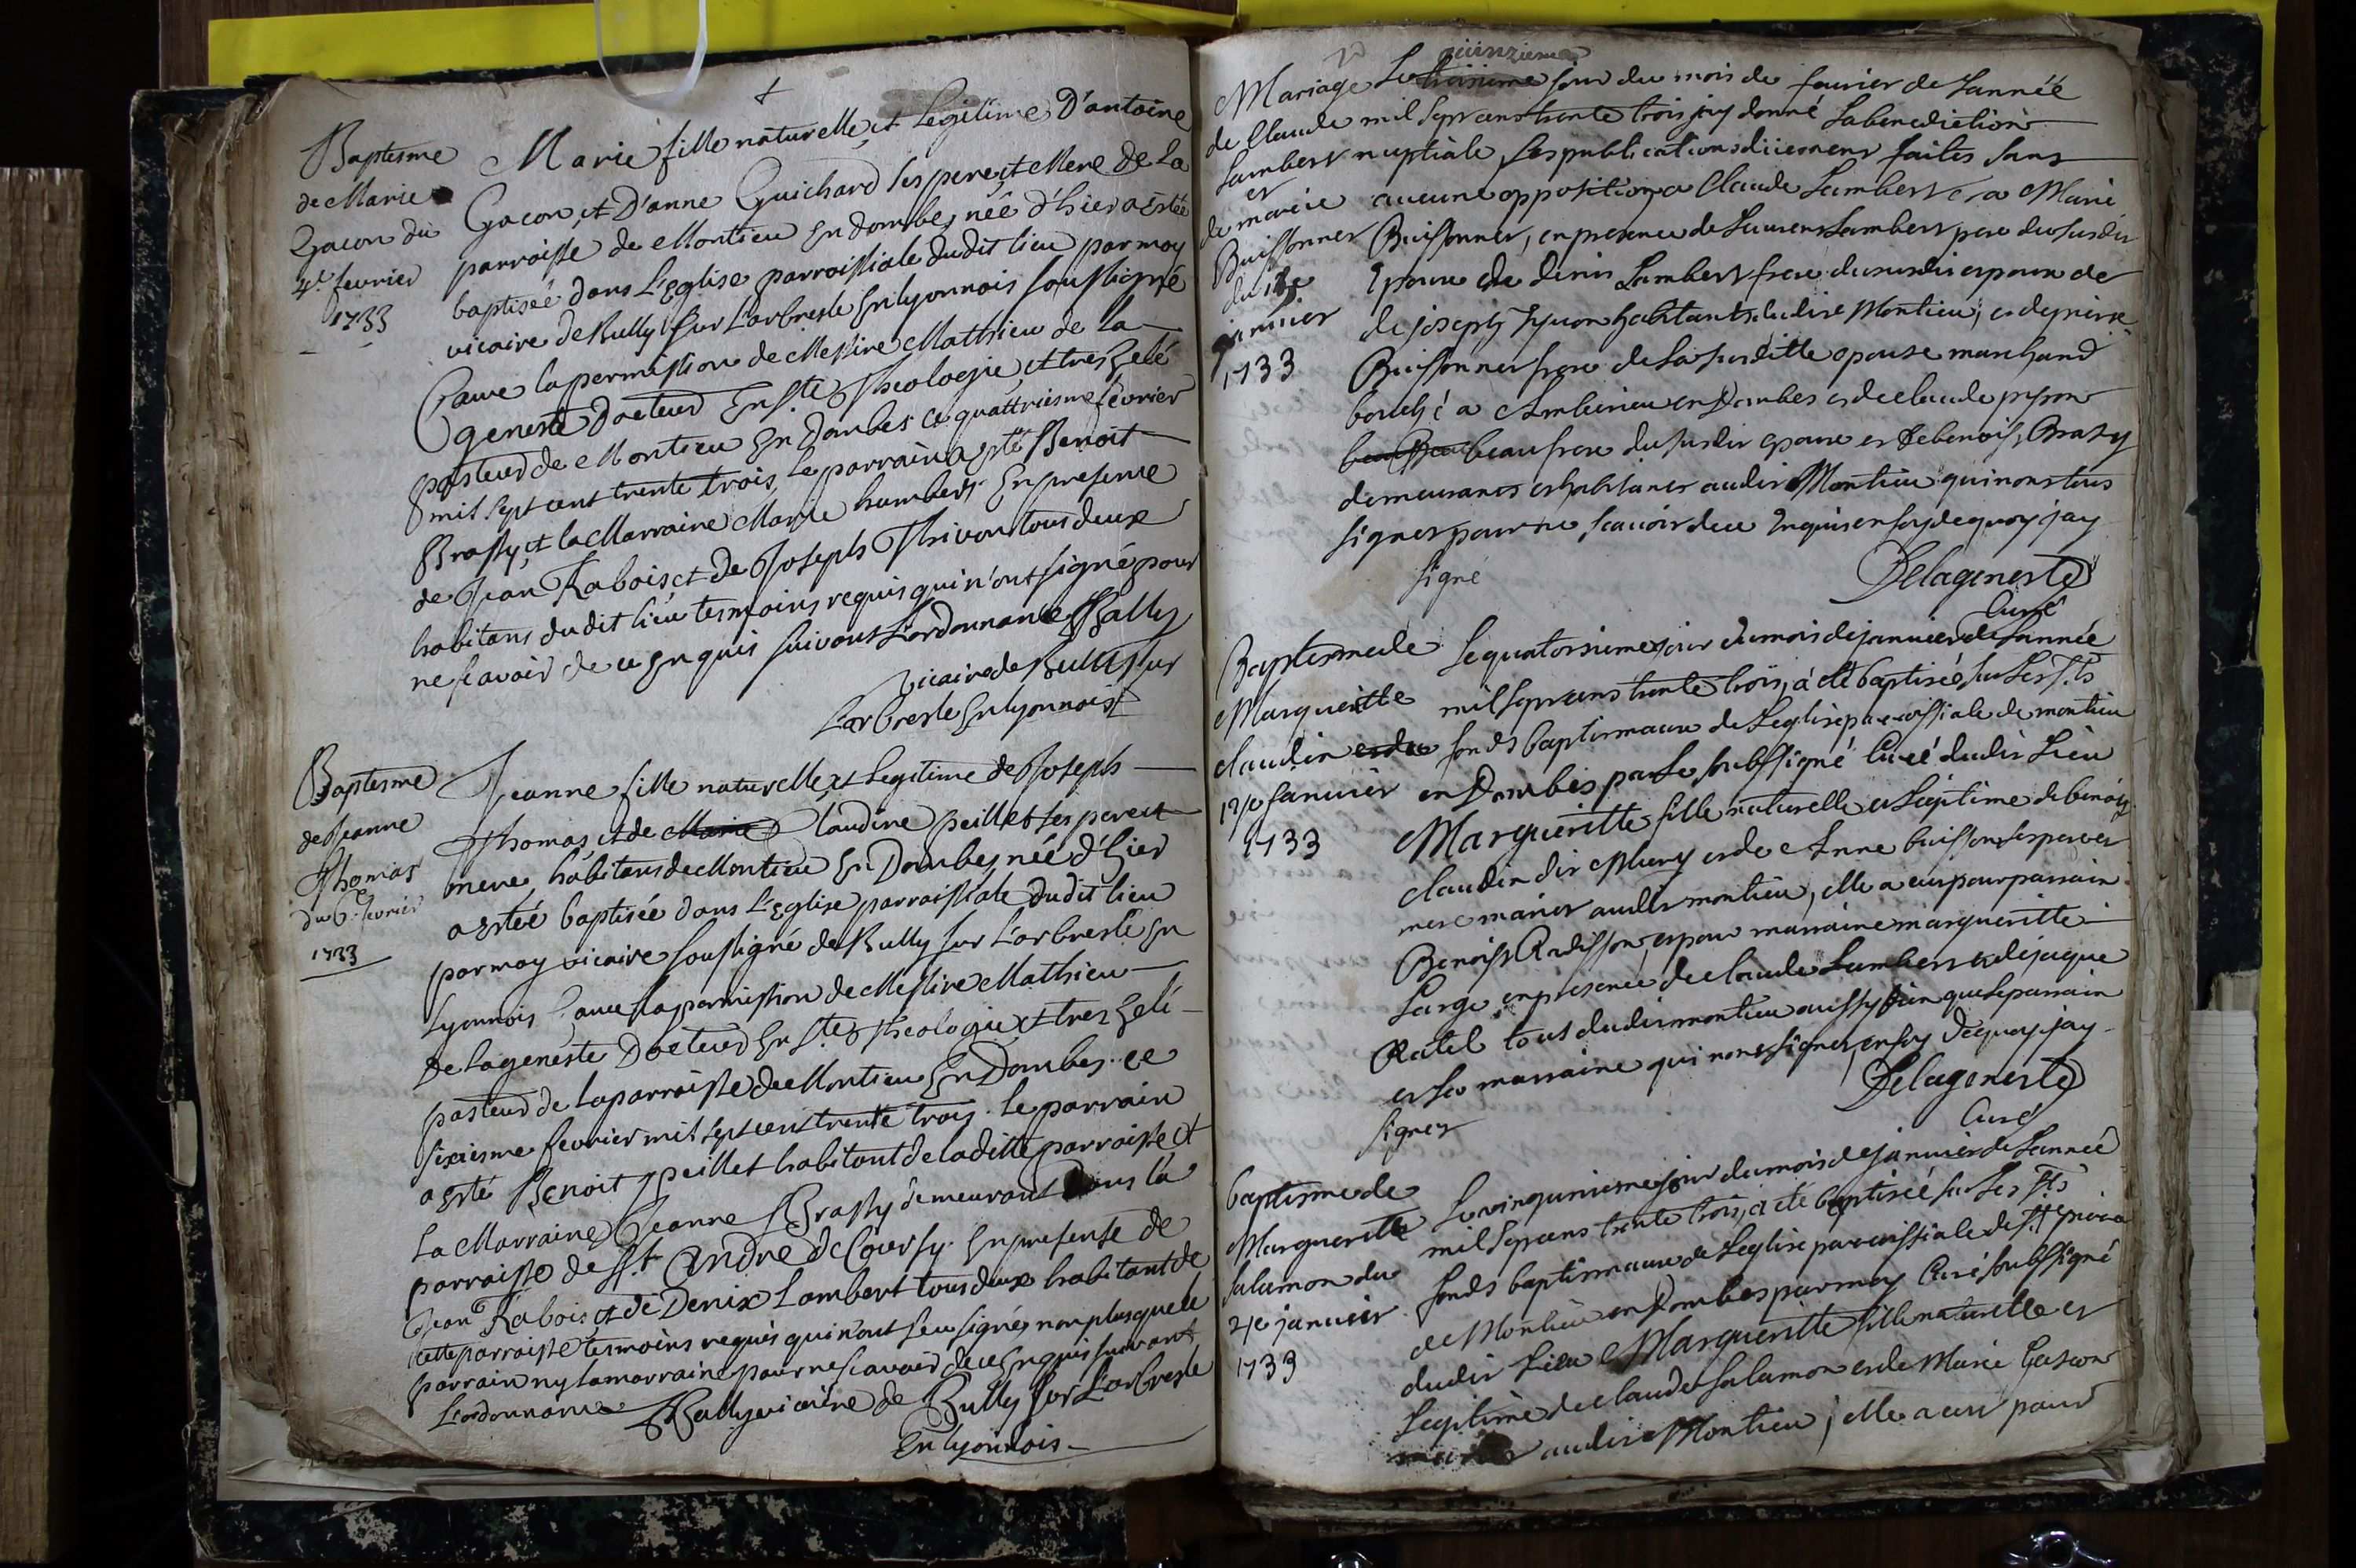 Baptesme
de Marie
Gacon du
4e fevrier
1733
Marie fille naturelle, et Legitime D'antoine
Gacon, et D'anne Guichard ses pere, et Mere de La
parroisse de Montieu En dombes, née d'hier a estée
baptisée dans L'Eglise parroissiale dudit lieu par moy
vicaire de Bully sur Larbresle En lyonnois soussigné
avec la permission de Messire Matthieu de la
geneste docteur En Ste Theologie, et tres zelé
pasteur de Montieu En dombes ce quattriesme fevrier
mil sept cent trente trois, Le parrain a esté Benoit
Brassy, et la Marraine Marie humbert En presence
de Jean Rabois, et de Joseph Thivon tous deux
habitans du dit lieu tesmoins requis qui n'ont signé pour
ne scavoir de ce Enquis suivant L'ordonnance Bally
vicaire de Bully sur
Larbresle En lyonnois
Baptesme
de Jeanne
Thomas
du 6e fevrier
1733
Jeanne fille naturelle, et Legitime de Joseph
Thomas, et de Marie Claudine peillet ses pere et
mere, habitans de Montieu En Dombes, née d'hier
a estée baptisée dans L'Eglise parroissiale dudit lieu
par moy vicaire soussigné de Bully sur Larbresle En
Lyonnois avec la permission de Messire Mathieu
De Lageneste Docteur En Ste Theologie, et tres zelé
pasteur de la parroisse de Montieu En Dombes ce
sixiesme fevrier mil sept cent trente trois. Le parrain
a esté Benoit peillet habitant de la ditte parroisse et
La Marraine Jeanne Brassy demeurant dans la
parroisse de St André de Coursy. En presense de
Jean Rabois, et de Denix Lambert tous deux habitant de
cette parroisse tesmoins requis qui n'ont sceu signé, non plus que le
parrain ny la marraine pour ne scavoir de ce Enquis suivant
L'ordonnance Bally vicaire de Bully sur Larbresle
En lyonnois
Mariage
de Claude
Lambert
et
de marie
Buissonner
du 15e
janvier
1733
quinzieme
Le troisieme jour du mois de fevrier de Lannée
mil sept cens trente trois jay donné La benediction
nuptiale, les publications düement faites sans
aucune opposition a Claude Lambert et a Marie
Buissonner, en presence de Laurens Lambert pere du susdit
Epoux de denis Lambert frere du susdit espoux de
de joseph Tyvon habitants du dit Montieu, et de pierre
Buissonner frere de La susditte epouse marchand
bouché a Amberieu en Dombes et de claude pyson
beau frere du susdit epoux et de benoist Brassy
demeurants et habitants audit Montieu qui nont sus
signer pour ne scavoir de ce Enquis en foy de quoy jay
signé
Delageneste
Curé
Baptesme de
Margueritte
claudin
14e janvier
1733
Le quatorsieme jour du mois de janvier de Lannée
mil sept cens trente trois, a été baptisée sur Les Sts
fonds baptismaux de Leglise parroissiale de montieu
en Dombes par Le soubssigné Curé dudit Lieu
Margueritte fille naturelle et Legitime de benoist
claudin dit Muny et de Anne buisson ses pere et
mere mariés audit montieu, elle a eu pour parrain
Benoist Radisson, et pour marraine margueritte
Large, en presence de claude Lambert et de jaque
Ratel tous dudit montieu aussy bien que le parrain
et La marraine qui nont signer, en foy de quoy jay
signer
Delageneste
Curé
baptisme de
Margueritte
Salamon du
21e janvier
1733
Le vingt unieme jour du mois de janvier de Lannée
mil sept cens trente trois, a été baptisée sur Les Sts
fonds baptismaux de Leglise parroissiale de St pierre
de Montieu en Dombes par moy Curé soubssigné
dudit Lieu Margueritte fille naturelle et
Legitime de claude Salamon et de Marie Gascon
mariés audit Montieu, elle a eu pour